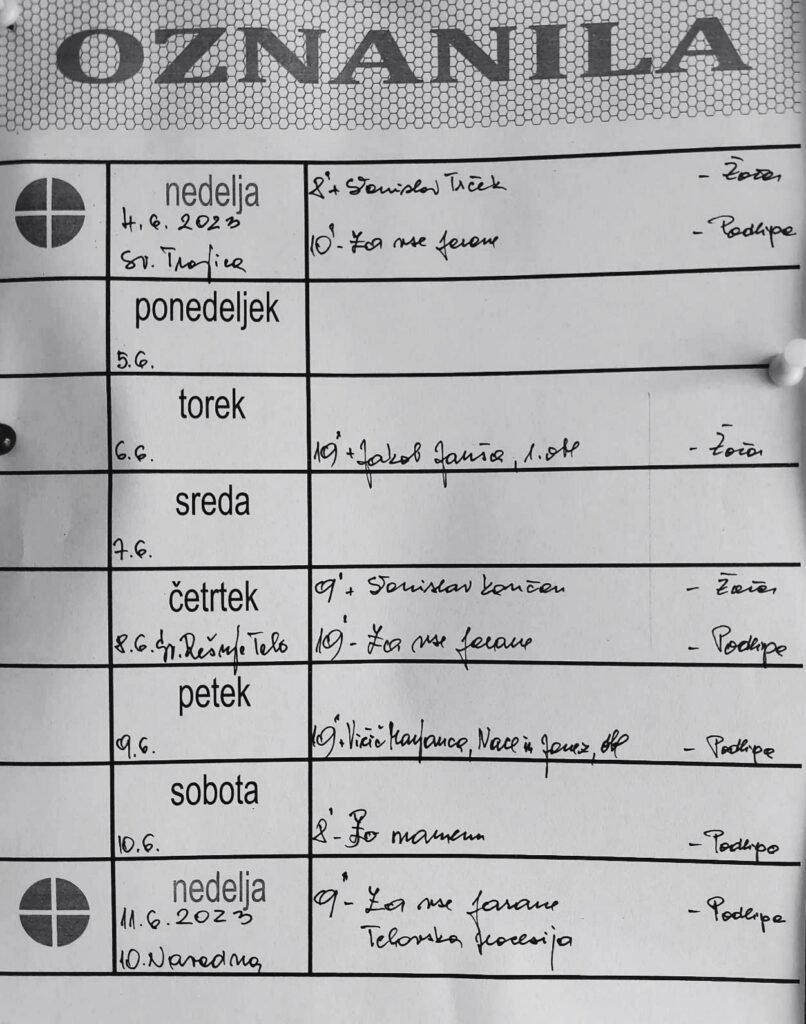 OZNANILA
nedelja
4. 6. 2023
Sv. Trojica
8' + Stanislav Trček - Žažar
10' - Za vse farane - Podlipa
ponedeljek
5.6.
torek
6.6.
19' + Jakob Janša, 1. obl - Žažar
sreda
7.6.
četrtek
8.6. Sv. Rešnje Telo
9' + Stanislav Končan - Žažar
19' - Za vse farane - Podlipa
petek
9.6.
19' + Marjanca, Nace in Janez, obl - Podlipa
sobota
10.6.
8' - Po namenu - Podlipa
nedelja
11.6.2023
10. Navadna
9' - Za vse farane - Podlipa
Telovska procesija